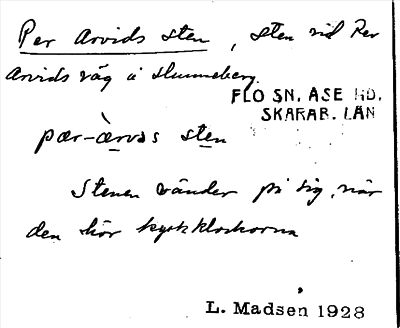 Per Arvids sten, sten vid Per
Arvids väg å Hunneberg.
FLO SN. ÅSE HD.
SKARAB. LÄN
pær-àrvas sten
Stenen vänder på sig, när
den hör kyrkklockorna
L. Madsen 1928